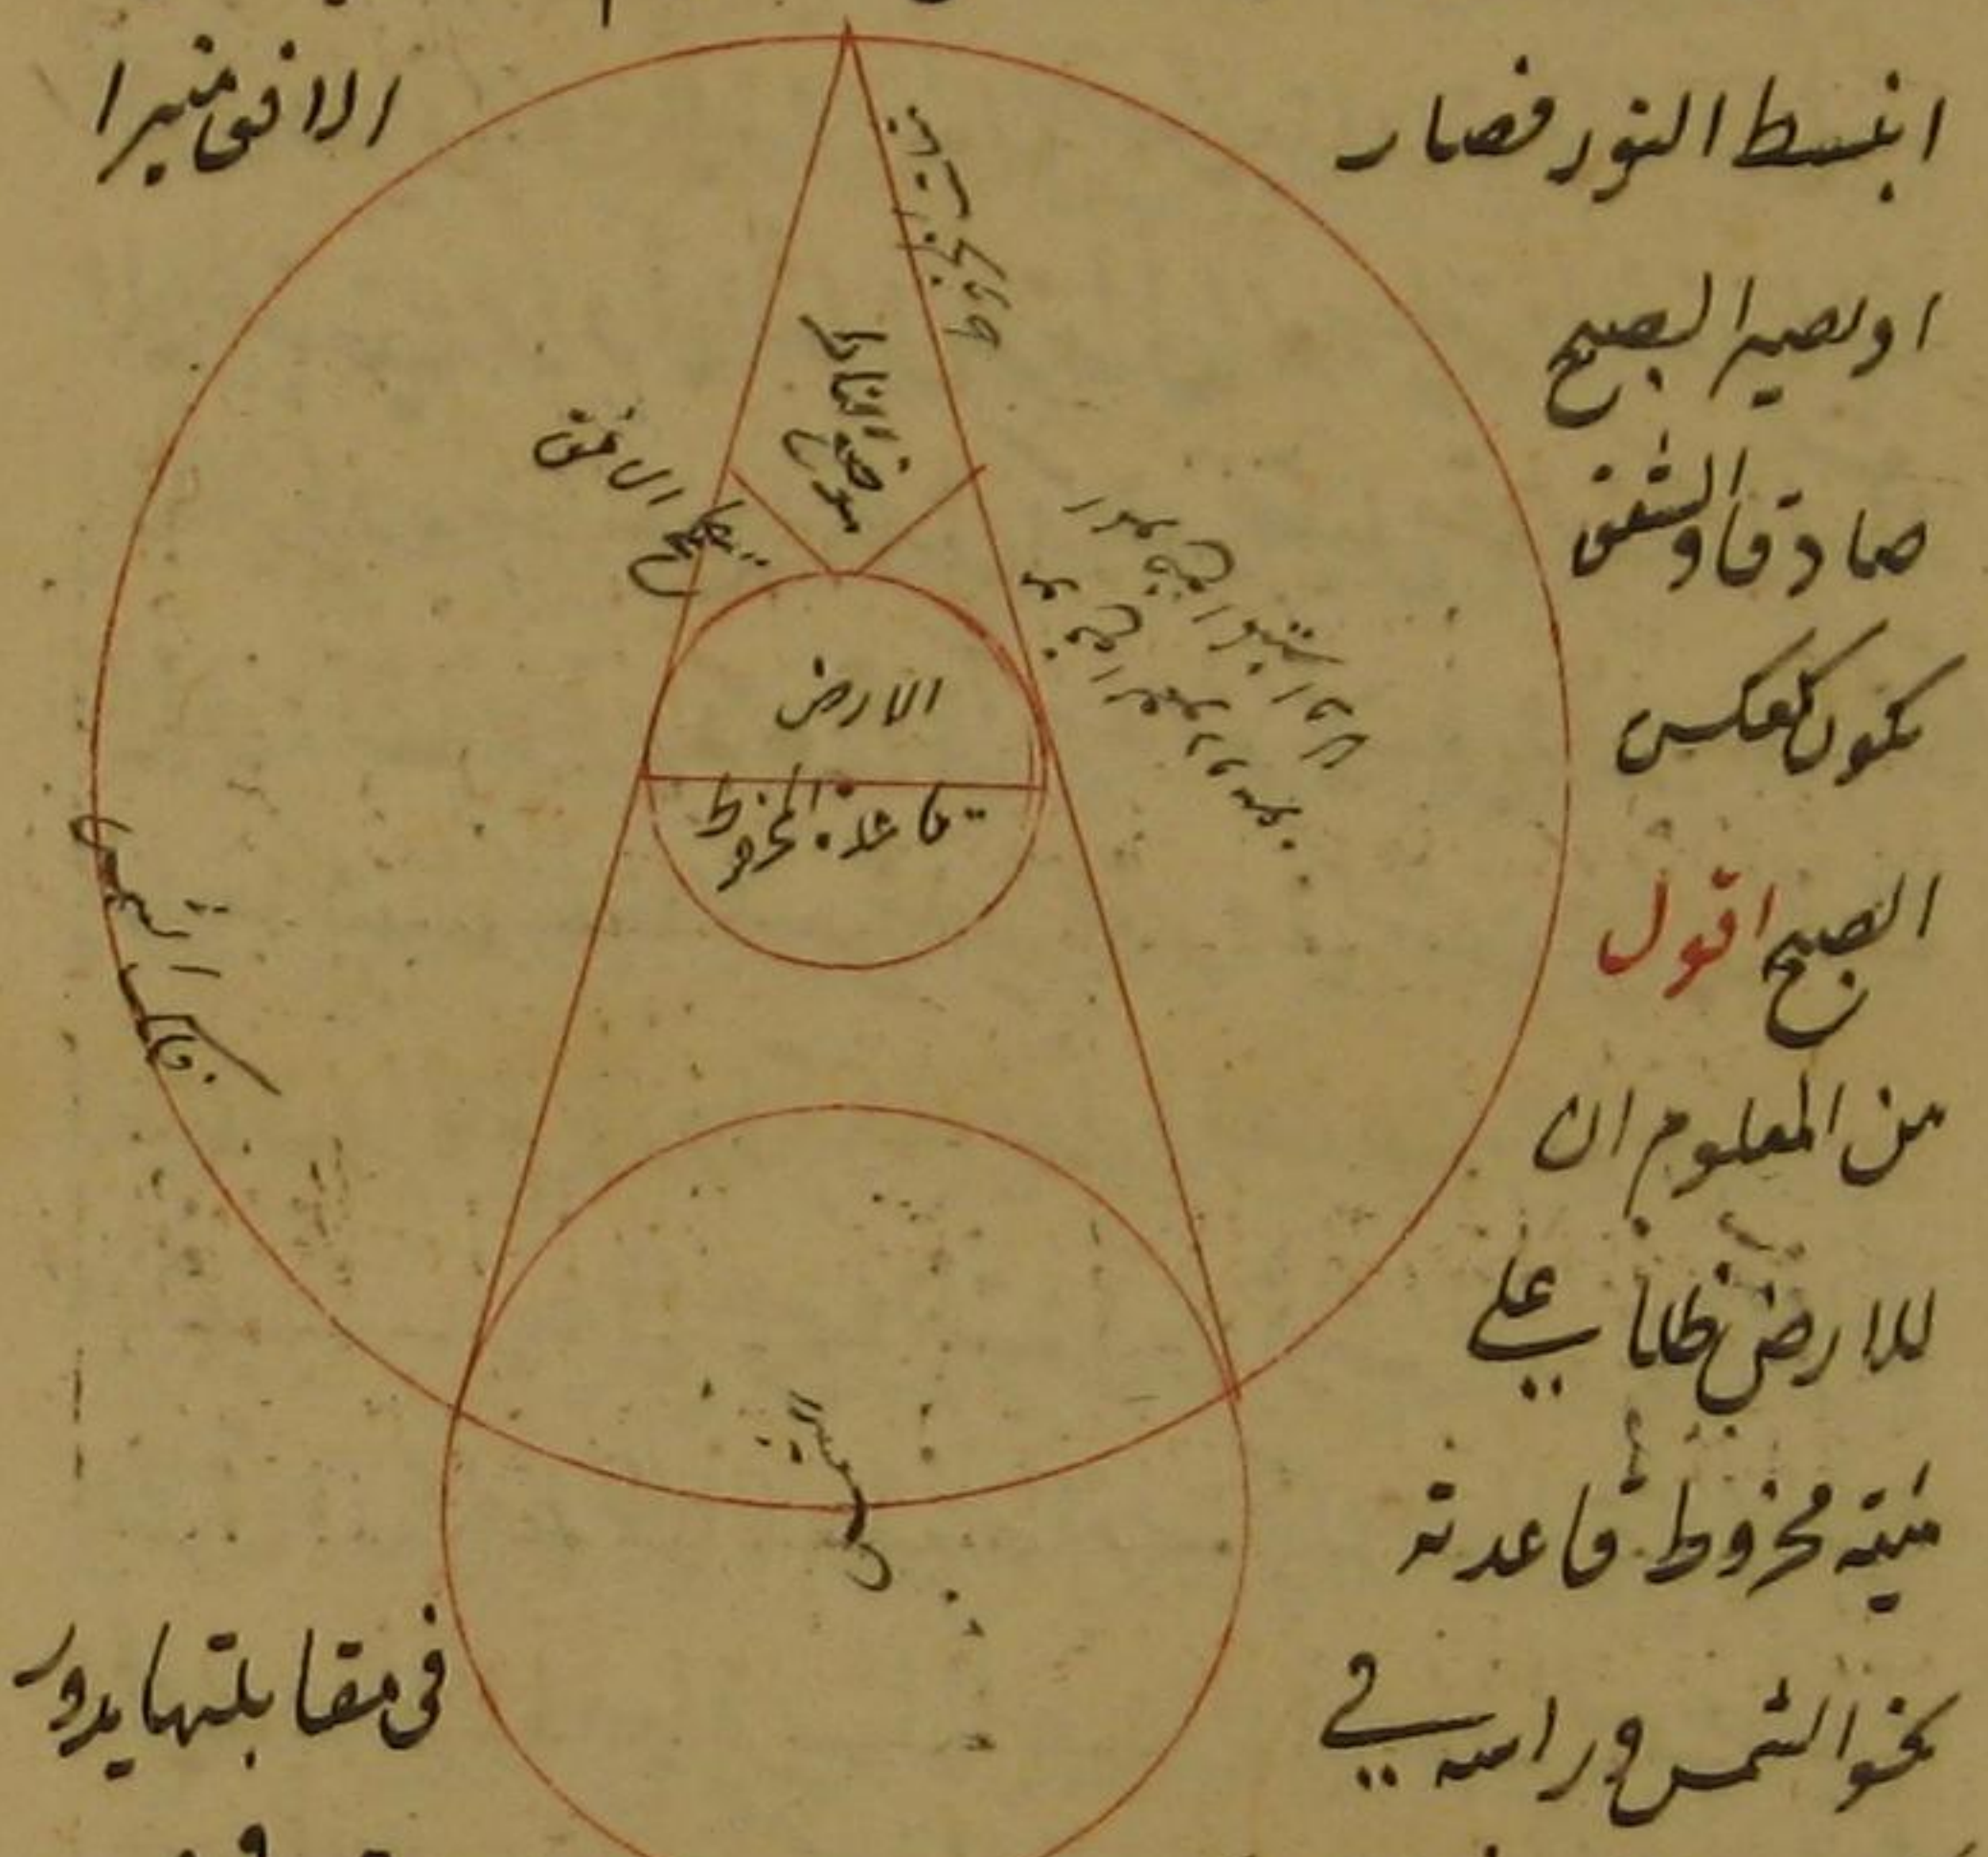 انبسط النور فصار الافق منيرا
او يصير الصبح
صادقا والشفق
يكون كعكس
الصبح اقول
من المعلوم ان
للارض ظلا على
هيئة مخروط قاعدته
نحو الشمس وراسه في في مقابلتها يدور
موضع الناظر
سطح الافق
الارض
قاعدة المخروط
فلك الشمس